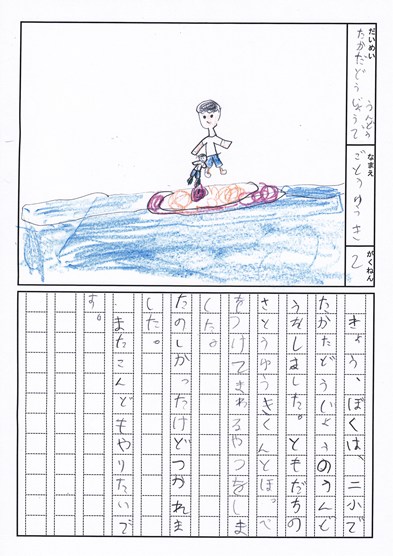 だいめい
たかだどうじょうで
うんどう
なまえ
ごとうゆうき
がくねん
2
きょう、ぼくは、二小で
たかたどういょうのうんど
うをしました。ともだちの
さとうゆうきくんとほ。ぺ
をつけてまわるやつをしま
した。
たのしかったけどつかれま
した。
またこんどもやりたいで
す。